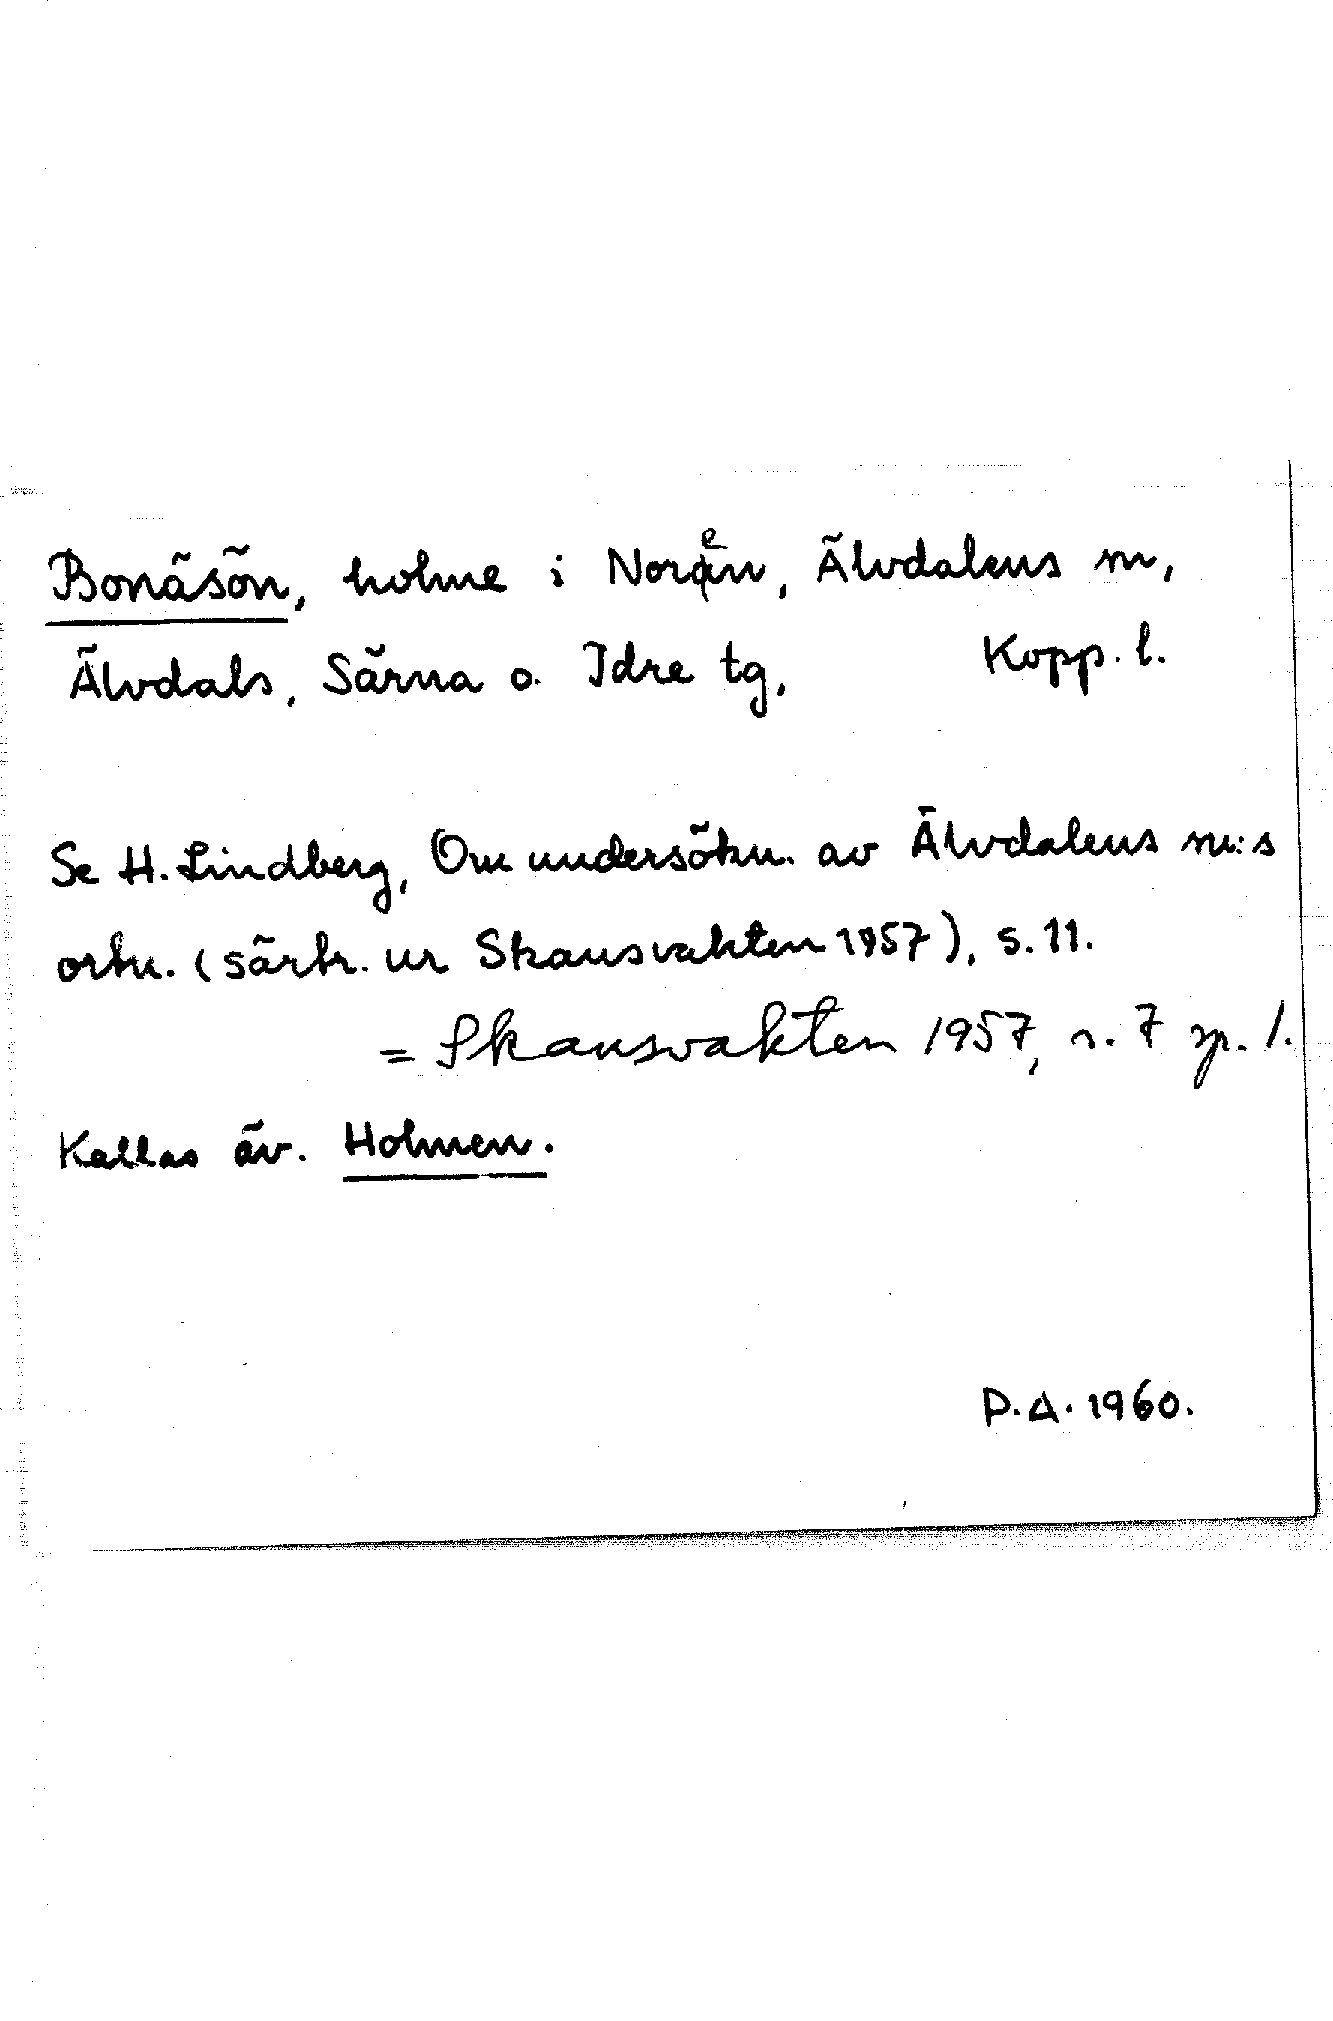 Bonäsön, holme i Noren, Älvdalens sn,
Älvdals, Särna o. Idre tg, Kopp. l.
Se H. Lindberg, Om undersökn. av Älvdalens sn:s
ortn. (särtr. ur Skansvakten 1957), s. 11.
= Skansvakten 1957, s. 7 sp. 1.
Kallas äv. Holmen.
P.A. 1960.